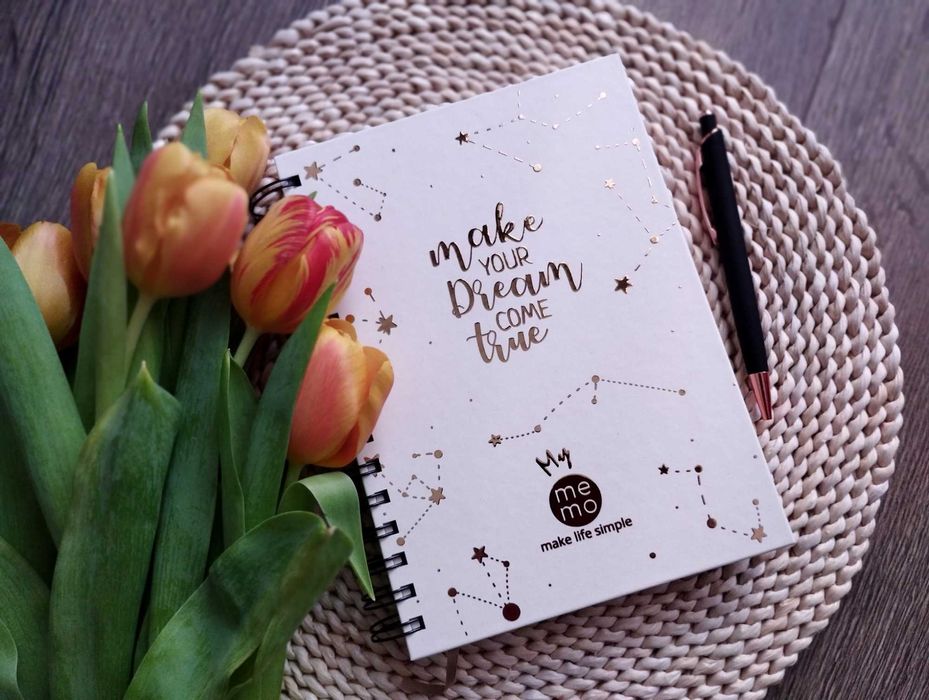 make
YOUR
Dream
COME
true
My
me
mo
make life simple